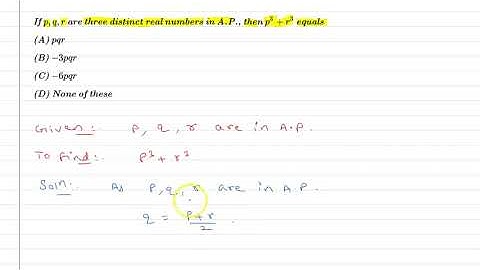 If p, q, r are three distinct real numbers in A.P., then p³ + r³ equals
(A) pqr
(B) −3pqr
(C) −6pqr
(D) None of these
Given:  P, q, r are in A.P.
To find:  p³ + r³
Soln:  As P, q, r are in A.P.
q = p+r/2 .